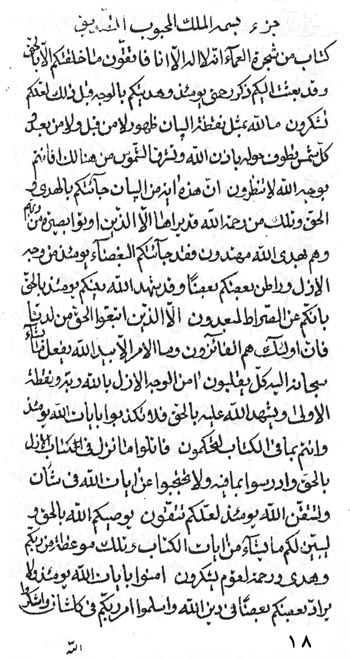 جزء بسمه الملك المحبوب
كتاب من شجرة العماء انه لا اله الا انا فاتقون ما خلقتكم الا بالحق
وقد بعث اليكم ذكر حق يومئذ وهديكم بالوجه قبل ذلك لعلكم
تشكرون ما لله مثل نقطة البيان ظهور لا من قبل ولا من بعد و
كل شمس تطوف حوله باذن الله وتشرق الشموس من هنالك فانتم
بوجه الله لا تنظرون ان هذه اية من البيان جائتكم بالهدى و
الحق وتلك من رحمة الله قد يراها الا الذين اوتوا بصيرة من ربهم
وهم بهدى الله مهتدون وقد جائتكم البغضاء يومئذ من وجه
الازل بعضكم بعضا وقد يشهد الله بينكم يومئذ بالحق
بانكم عن الصراط لمبعدون الا الذين اتبعوا الحق من لدنا
فان اولئك هم الفائزون وما الامر الا بيد الله يفعل ما يشاء
سبحانه اليه كل يقلبون امن الوجه الازل بالله ربه ونقطة
الاولى ويشهد الله عليه بالحق فلا تكذبوا بايات الله يومئذ
وانتم بما فى الكتاب لتحكمون فاتلوا ما نزل فى الكتاب الازل
بالحق وادرسوا بما فيه ولا تحتجبوا عن ايات الله فى شأن
ولتتقن الله يومئذ لعلكم تتقون يوصيكم الله بالحق و
ليبين لكم ما يشاء من ايات الكتاب وتلك موعظة من ربكم
وهدى ورحمة لقوم يشكرون امنوا بايات الله يومئذ ولا
يراد بعضكم بعضا فى دين الله واسلموا امر ربكم فى كل شأن واشكروا
الله
١٨